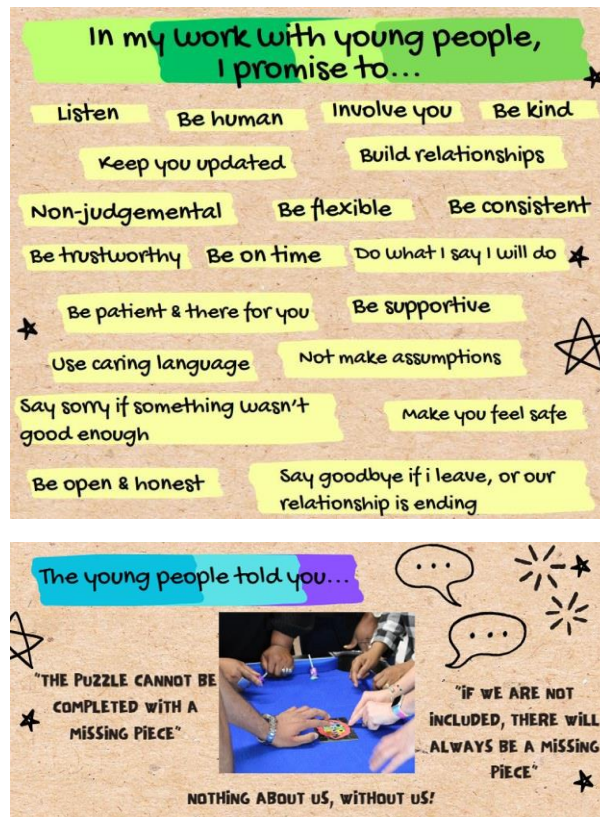 In my work with young people,
I promise to...
Listen
Be human
Involve you
Be kind
Keep you updated
Build relationships
Non-judgemental
Be flexible
Be consistent
Be trustworthy
Be on time
Do what I say I will do
Be patient & there for you
Be supportive
Use caring language
Not make assumptions
Say sorry if something wasn't
good enough
Make you feel safe
Be open & honest
Say goodbye if i leave, or our
relationship is ending
The young people told you...
"THE PUZZLE CANNOT BE
COMPLETED WITH A
MISSING PIECE"
"IF WE ARE NOT
INCLUDED, THERE WILL
ALWAYS BE A MISSING
PIECE"
NOTHING ABOUT US, WITHOUT US!